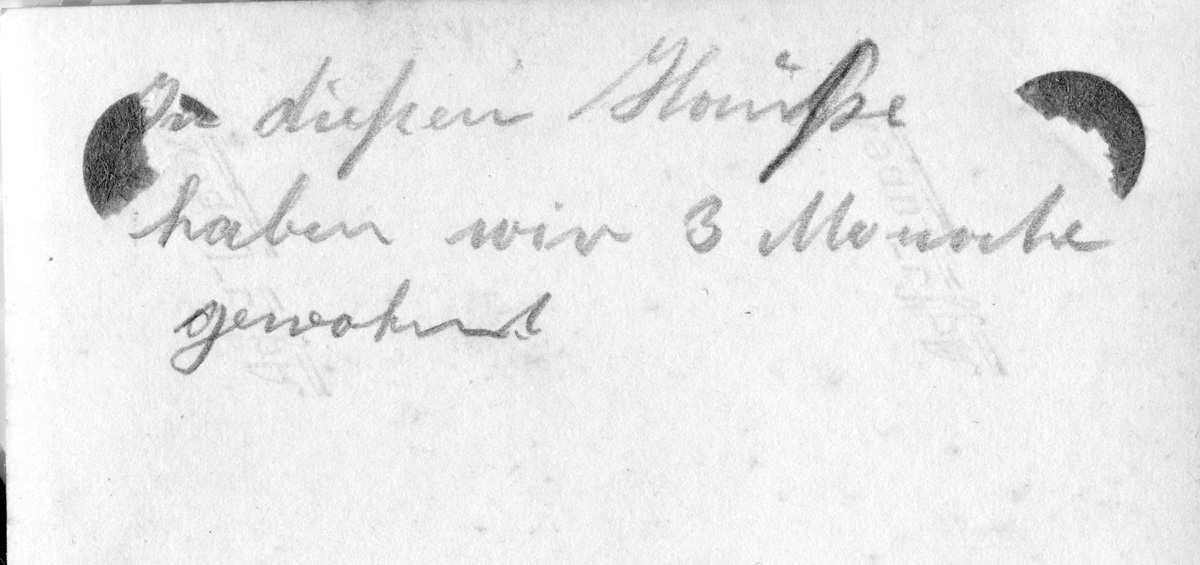 In dießen Hauße
haben wir 3 Monate
gewohnt